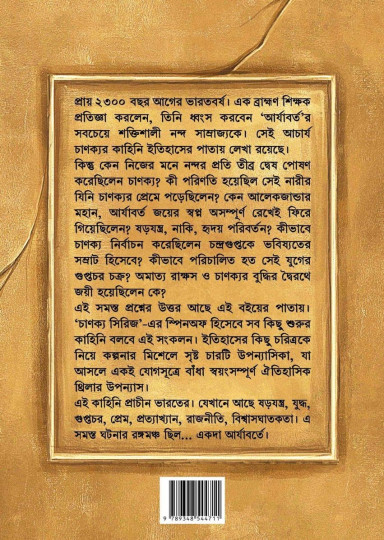 প্রায় ২৩০০ বছর আগের ভারতবর্ষ। এক ব্রাহ্মণ শিক্ষক
প্রতিজ্ঞা করলেন, তিনি ধ্বংস করবেন ‘আর্যাবর্ত’র
সবচেয়ে শক্তিশালী নন্দ সাম্রাজ্যকে। সেই আচার্য
চাণক্যর কাহিনি ইতিহাসের পাতায় লেখা রয়েছে।
কিন্তু কেন নিজের মনে নন্দর প্রতি তীব্র দ্বেষ পোষণ
করেছিলেন চাণক্য? কী পরিণতি হয়েছিল সেই নারীর
যিনি চাণক্যর প্রেমে পড়েছিলেন? কেন আলেকজান্ডার
মহান, আর্যাবর্ত জয়ের স্বপ্ন অসম্পূর্ণ রেখেই ফিরে
গিয়েছিলেন? ষড়যন্ত্র, নাকি, হৃদয় পরিবর্তন? কীভাবে
চাণক্য নির্বাচন করেছিলেন চন্দ্রগুপ্তকে ভবিষ্যতের
সম্রাট হিসেবে? কীভাবে পরিচালিত হত সেই যুগের
গুপ্তচর চক্র? অমাত্য রাক্ষস ও চাণক্যর বুদ্ধির দ্বৈরথে
জয়ী হয়েছিলেন কে?
এই সমস্ত প্রশ্নের উত্তর আছে এই বইয়ের পাতায়।
‘চাণক্য সিরিজ’-এর স্পিনঅফ হিসেবে সব কিছু শুরুর
কাহিনি বলবে এই সংকলন। ইতিহাসের কিছু চরিত্রকে
নিয়ে কল্পনার মিশেলে সৃষ্ট চারটি উপন্যাসিকা, যা
আসলে একই যোগসূত্রে বাঁধা স্বয়ংসম্পূর্ণ ঐতিহাসিক
থ্রিলার উপন্যাস।
এই কাহিনি প্রাচীন ভারতের। যেখানে আছে ষড়যন্ত্র, যুদ্ধ,
গুপ্তচর, প্রেম, প্রত্যাখ্যান, রাজনীতি, বিশ্বাসঘাতকতা। এ
সমস্ত ঘটনার রঙ্গমঞ্চ ছিল... একদা আর্যাবর্তে।
9 789348 544711